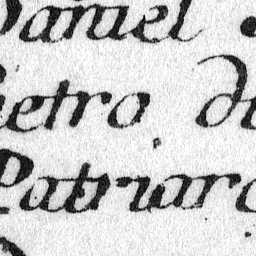 Daniel
Pietro di
Patriarc